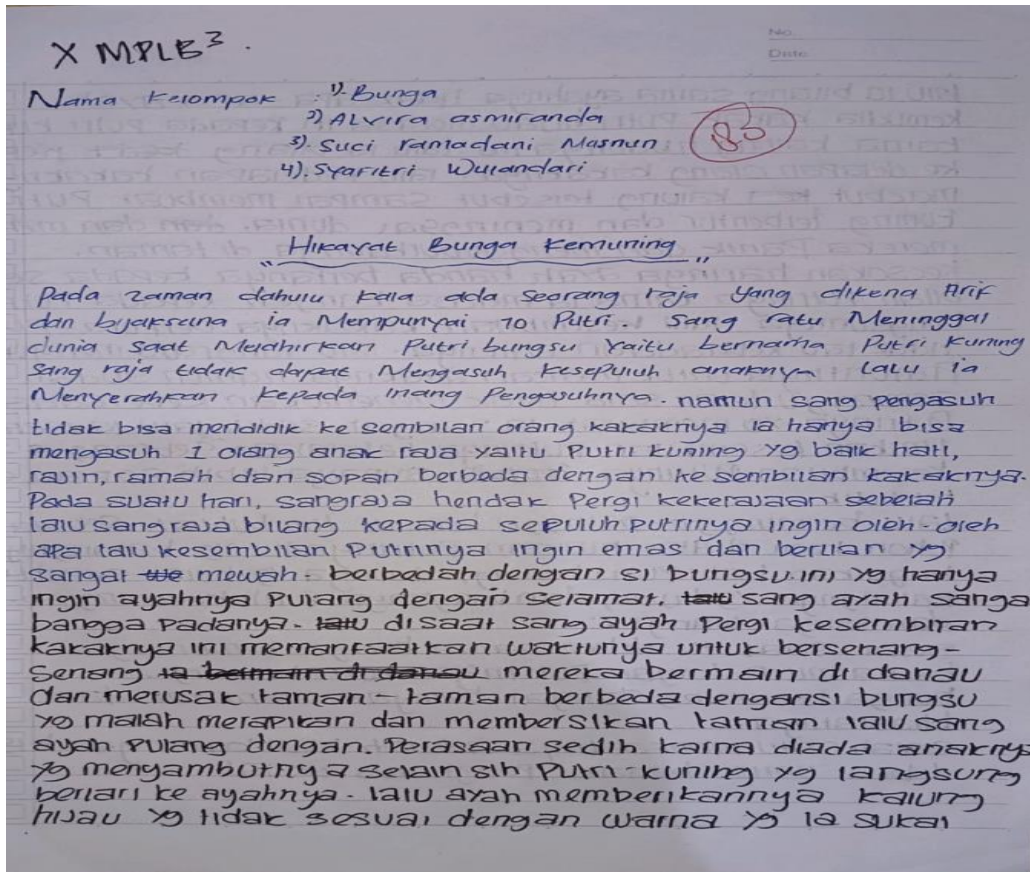 No.
Date
X MPLB 3.
Nama Kelompok : 1). Bunga
2) ALvira asmiranda
3). Suci ramadani Masnun
4). Syafitri Wulandari
83
"Hikayat Bunga Kemuning"
Pada zaman dahulu kala ada seorang raja yang dikena Arif
dan bijaksana ia Mempunyai 10 Putri. Sang ratu Meninggal
dunia saat Melahirkan Putri bungsu Yaitu bernama Putri Kuning
Sang raja tidak dapat Mengasuh kesepuluh anaknya lalu ia
Menyerahkan kepada inang Pengasuhnya. namun sang pengasuh
tidak bisa mendidik ke sembilan orang kakaknya ia hanya bisa
mengasuh 1 orang anak raja yaitu Putri kuning yg baik hati,
rajin, ramah dan sopan berbeda dengan ke sembilan kakaknya.
Pada suatu hari, sangraja hendak Pergi kekerajaan sebelah
lalu sangraja bilang kepada sepuluh putrinya ingin oleh-oleh
apa lalu kesembilan Putrinya ingin emas dan berlian yg
sangat mewah. berbedah dengan si bungsu ini yg hanya
ingin ayahnya Pulang dengan Selamat. lalu sang ayah sanga
bangga padanya. lalu disaat sang ayah Pergi kesembilan
kakaknya ini memanfaatkan waktunya untuk bersenang-
Senang ia bermain di danau mereka bermain di danau
dan merusak taman-taman berbeda dengansi bungsu
yg malah merapikan dan membersikan taman lalu sang
ayah Pulang dengan. Perasaan sedih karna diada anaknya
yg menyambutnya selain sih Putri kuning yg langsung
berlari ke ayahnya. lalu ayah memberikannya kalung
hijau yg tidak sesuai dengan warna yg ia sukai